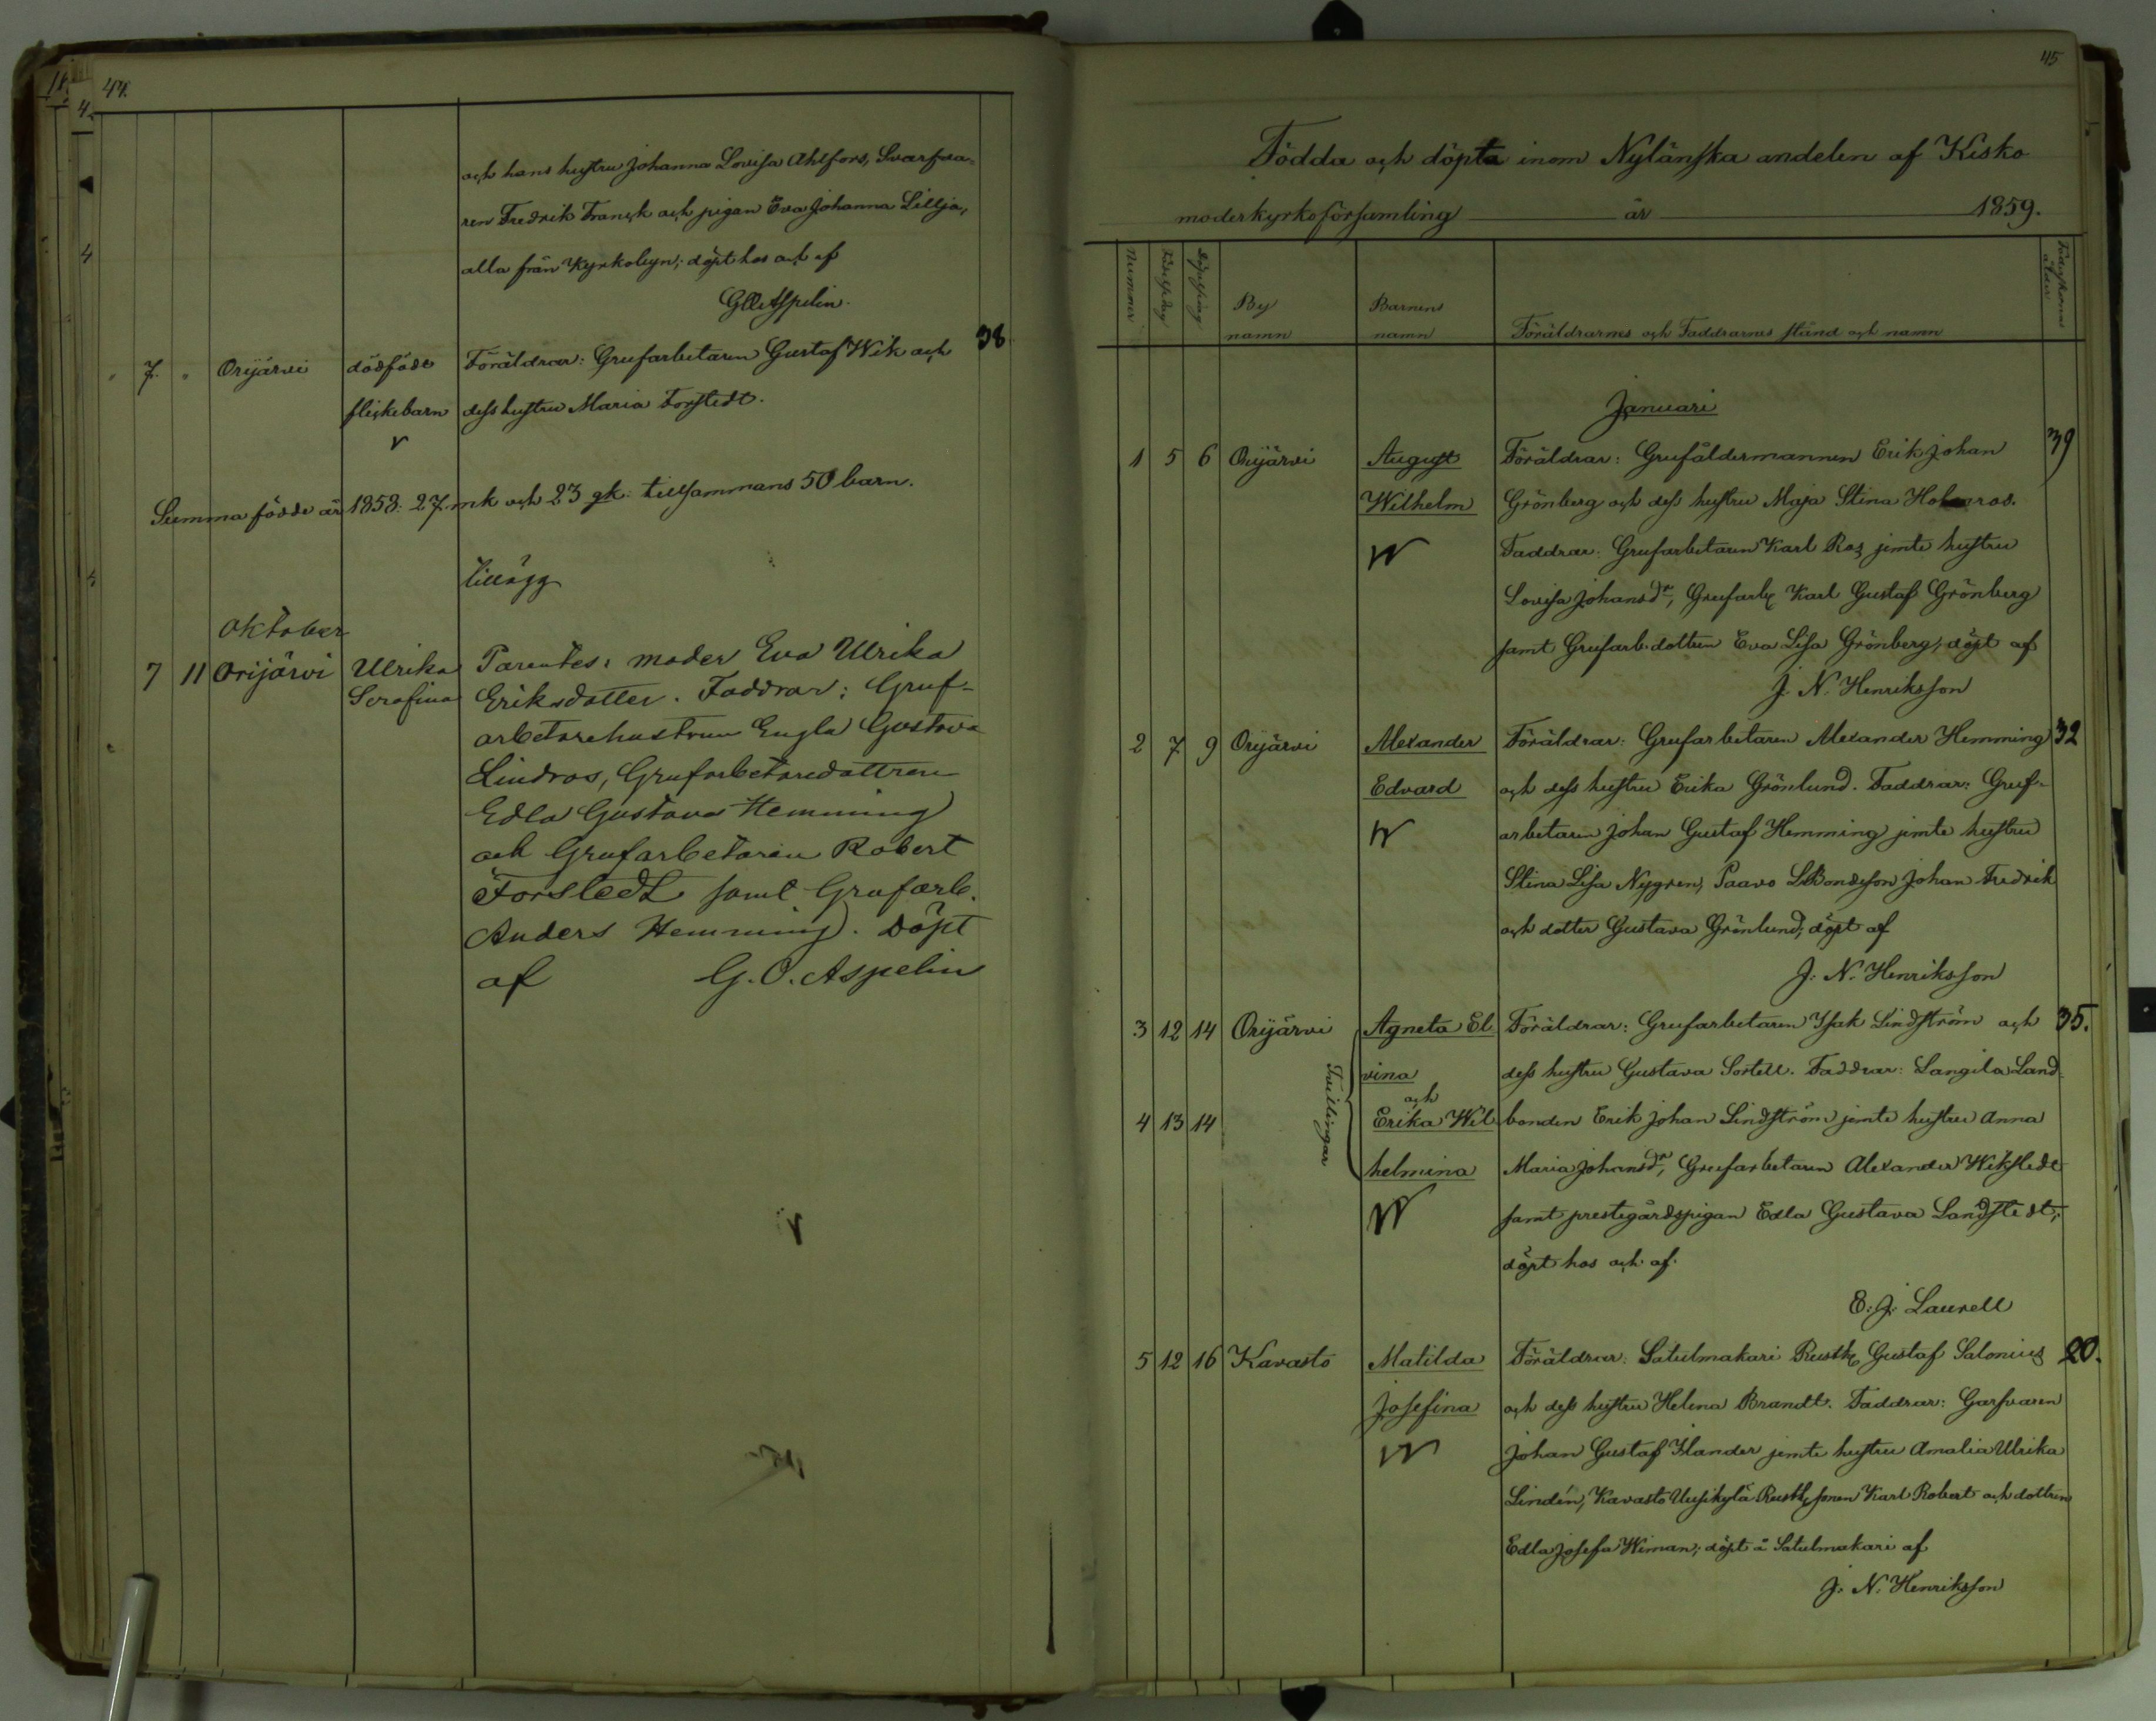 44.
och hans hustru Johanna Lovisa Ahlfors, Svarfva-
ren Fredrik Franck och pigan Eva Johanna Lillja,
alla från Kyrkobyn; döpt hos och af
Aspelin.
7. Orijärvi dödföde Föräldrar: Grufarbetaren Gustaf Wik och 38
flickebarn dess hustru Maria Forstedt.
Summa födde år 1858: 27 mk och 23 gk: tillsammans 50 barn.
Tillägg
Oktober
7 11 Orijärvi Ulrika Parentes: moder Eva Ulrika
Serafina Eriksdotter. Faddrar: Gruf-
arbetarehustrun Engla Gustava
Lindros, Grufarbetaredottren
Edla Gustava Hemming
och Grufarbetaren Robert
Forstedt samt Grufarb.
Anders Hemming. Döpt
af G. O. Aspelin
45
Födda och döpta inom Nylänska andelen af Kisko
moderkyrkoförsamling år 1859.
Nummer
By
namn
Barnens
namn
Föräldrarnes och Faddrarnes stånd och namn
ålder
Januari
1 5 6 Orijärvi August Föräldrar: Grufåldermannen Erik Johan 39
Wilhelm Grönberg och dess hustru Maja Stina
Faddrar: Grufarbetaren Karl Ros jemte hustru
Lovisa Johansdr, Grufarb. Karl Gustaf Grönberg
samt Grufarb. dottren Eva Lisa Grönberg; döpt af
J. N. Henriksson
2 7 9 Orijärvi Alexander Föräldrar: Grufarbetaren Alexander Hemming 32
Edvard och dess hustru Erika Grönlund. Faddrar: Gruf-
arbetaren Johan Gustaf Hemming jemte hustru
Stina Lisa Nygren, Paavo LBondeson Johan Fredrik
och dotter Gustava Grönlund; döpt af
J. N. Henriksson
3 12 14 Orijärvi Agneta El- Föräldrar: Grufarbetaren Isak Lindström och 35.
vina dess hustru Gustava Sortell. Faddrar: Langila Land-
och
Tvillingar
4 13 14 Erika Wil- bonden Erik Johan Lindström jemte hustru Anna
helmina Maria Johansdr, Grufarbetaren Alexander Wikstedt
samt prestegårdspigan Edla Gustava Landstedt;
döpt hos och af
E. J. Laurell
5 12 16 Kavasto Matilda Föräldrar: Satulmakari Rusth. Gustaf Salonius 20.
Josefina och dess hustru Helena Brandt. Faddrar: Garfvaren
Johan Gustaf Ilander jemte hustru Amalia Ulrika
Lindén, Kavasto Uusikylä Rusth. sonen Karl Robert och dottren
Edla Josefa Wiman; döpt å Satulmakari af
J. N. Henriksson